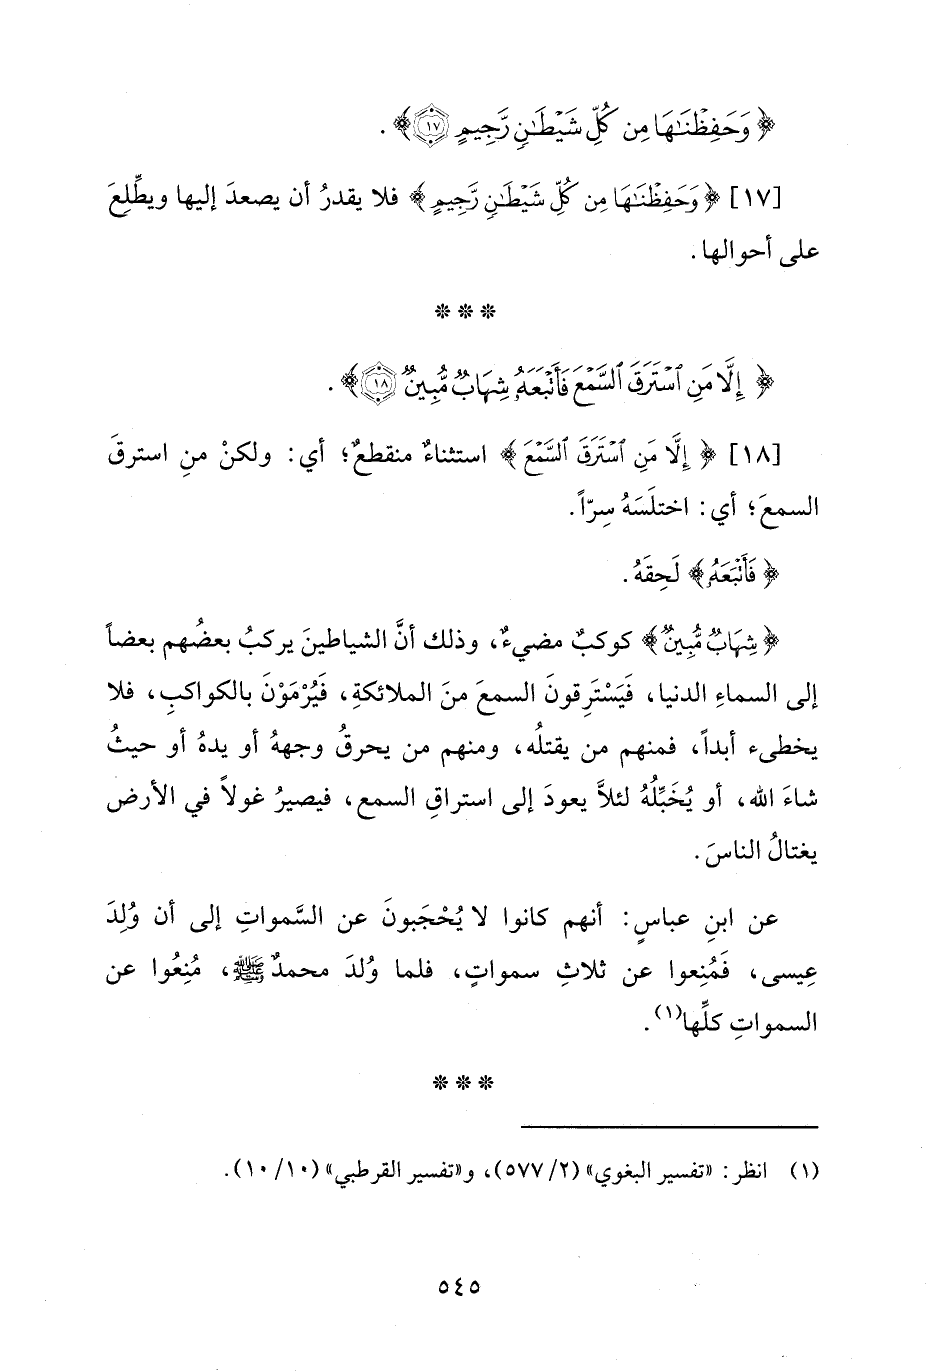 ﴿ وَحَفِظْنَٰهَا مِن كُلِّ شَيْطَٰنٍ رَّجِيمٍ ١٧ ﴾ .
[١٧] ﴿ وَحَفِظْنَٰهَا مِن كُلِّ شَيْطَٰنٍ رَّجِيمٍ ﴾ فلا يقدرُ أن يصعدَ إليها ويطَّلِعَ
على أحوالها .
* * *
﴿ إِلَّا مَنِ ٱسْتَرَقَ ٱلسَّمْعَ فَأَتْبَعَهُۥ شِهَابٌ مُّبِينٌ ١٨ ﴾ .
[١٨] ﴿ إِلَّا مَنِ ٱسْتَرَقَ ٱلسَّمْعَ ﴾ استثناءٌ منقطعٌ؛ أي: ولكنْ منِ استرقَ
السمعَ؛ أي: اختلَسَهُ سِرّاً.
﴿ فَأَتْبَعَهُۥ ﴾ لَحِقَهُ .
﴿ شِهَابٌ مُّبِينٌ ﴾ كوكبٌ مضيءٌ، وذلك أنَّ الشياطينَ يركبُ بعضُهم بعضاً
إلى السماءِ الدنيا، فَيَسْتَرِقونَ السمعَ منَ الملائكةِ، فَيُرْمَوْنَ بالكواكبِ، فلا
يخطىء أبداً، فمنهم من يقتلُه، ومنهم من يحرقُ وجههُ أو يدهُ أو حيثُ
شاءَ الله، أو يُخَبِّلُهُ لئلاَّ يعودَ إلى استراقِ السمع، فيصيرُ غولاً في الأرض
يغتالُ الناسَ .
عن ابنِ عباسٍ: أنهم كانوا لا يُحْجَبونَ عن السَّمواتِ إلى أن وُلِدَ
عِيسى، فَمُنِعوا عن ثلاثِ سمواتٍ، فلما وُلدَ محمدٌ ﷺ، مُنِعُوا عن
السمواتِ كلِّها(١).
* * *
(١) انظر: «تفسير البغوي» (٢/ ٥٧٧)، و«تفسير القرطبي» (١٠/ ١٠).
٥٤٥